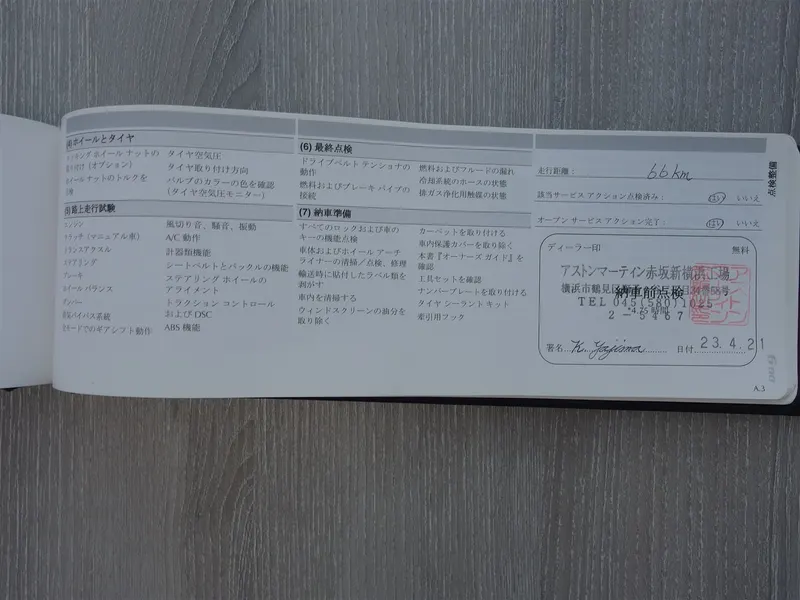 (4)ホイールとタイヤ
ホイール ナットの
取り付け（オプション）
ホイール ナットのトルクを
タイヤ空気圧
タイヤ取り付け方向
バルブのカラーの色を確認
（タイヤ空気圧モニター）
(5)路上走行試験
エンジン
クラッチ（マニュアル車）
トランスアクスル
ステアリング
ブレーキ
ホイールバランス
ダンパー
排気バイパス系統
モードでのギアシフト動作
風切り音、騒音、振動
A/C 動作
計器類機能
シートベルトとバックルの機能
ステアリング ホイールの
アライメント
トラクション コントロール
および DSC
ABS 機能
(6) 最終点検
ドライブベルト テンショナの
動作
燃料およびブレーキ パイプの
接続
燃料およびフルードの漏れ
冷却系統のホースの状態
排ガス浄化用触媒の状態
(7) 納車準備
すべてのロックおよび車の
キーの機能点検
車体およびホイール アーチ
ライナーの清掃／点検、修理
輸送時に貼付したラベル類を
剥がす
車内を清掃する
ウィンドスクリーンの油分を
取り除く
カーペットを取り付ける
車内保護カバーを取り除く
本書『オーナーズ ガイド』を
確認
工具セットを確認
ナンバープレートを取り付ける
タイヤ シーラント キット
牽引用フック
走行距離： 66km
該当サービス アクション点検済み： はい いいえ
オープン サービス アクション完了： はい いいえ
ディーラー印 無料
アストンマーティン赤坂新横浜工場
横浜市鶴見区
納車前点検
TEL 0455801025
2-5467
署名 K. Yajima 日付 23.4.21
点検整備
A.3